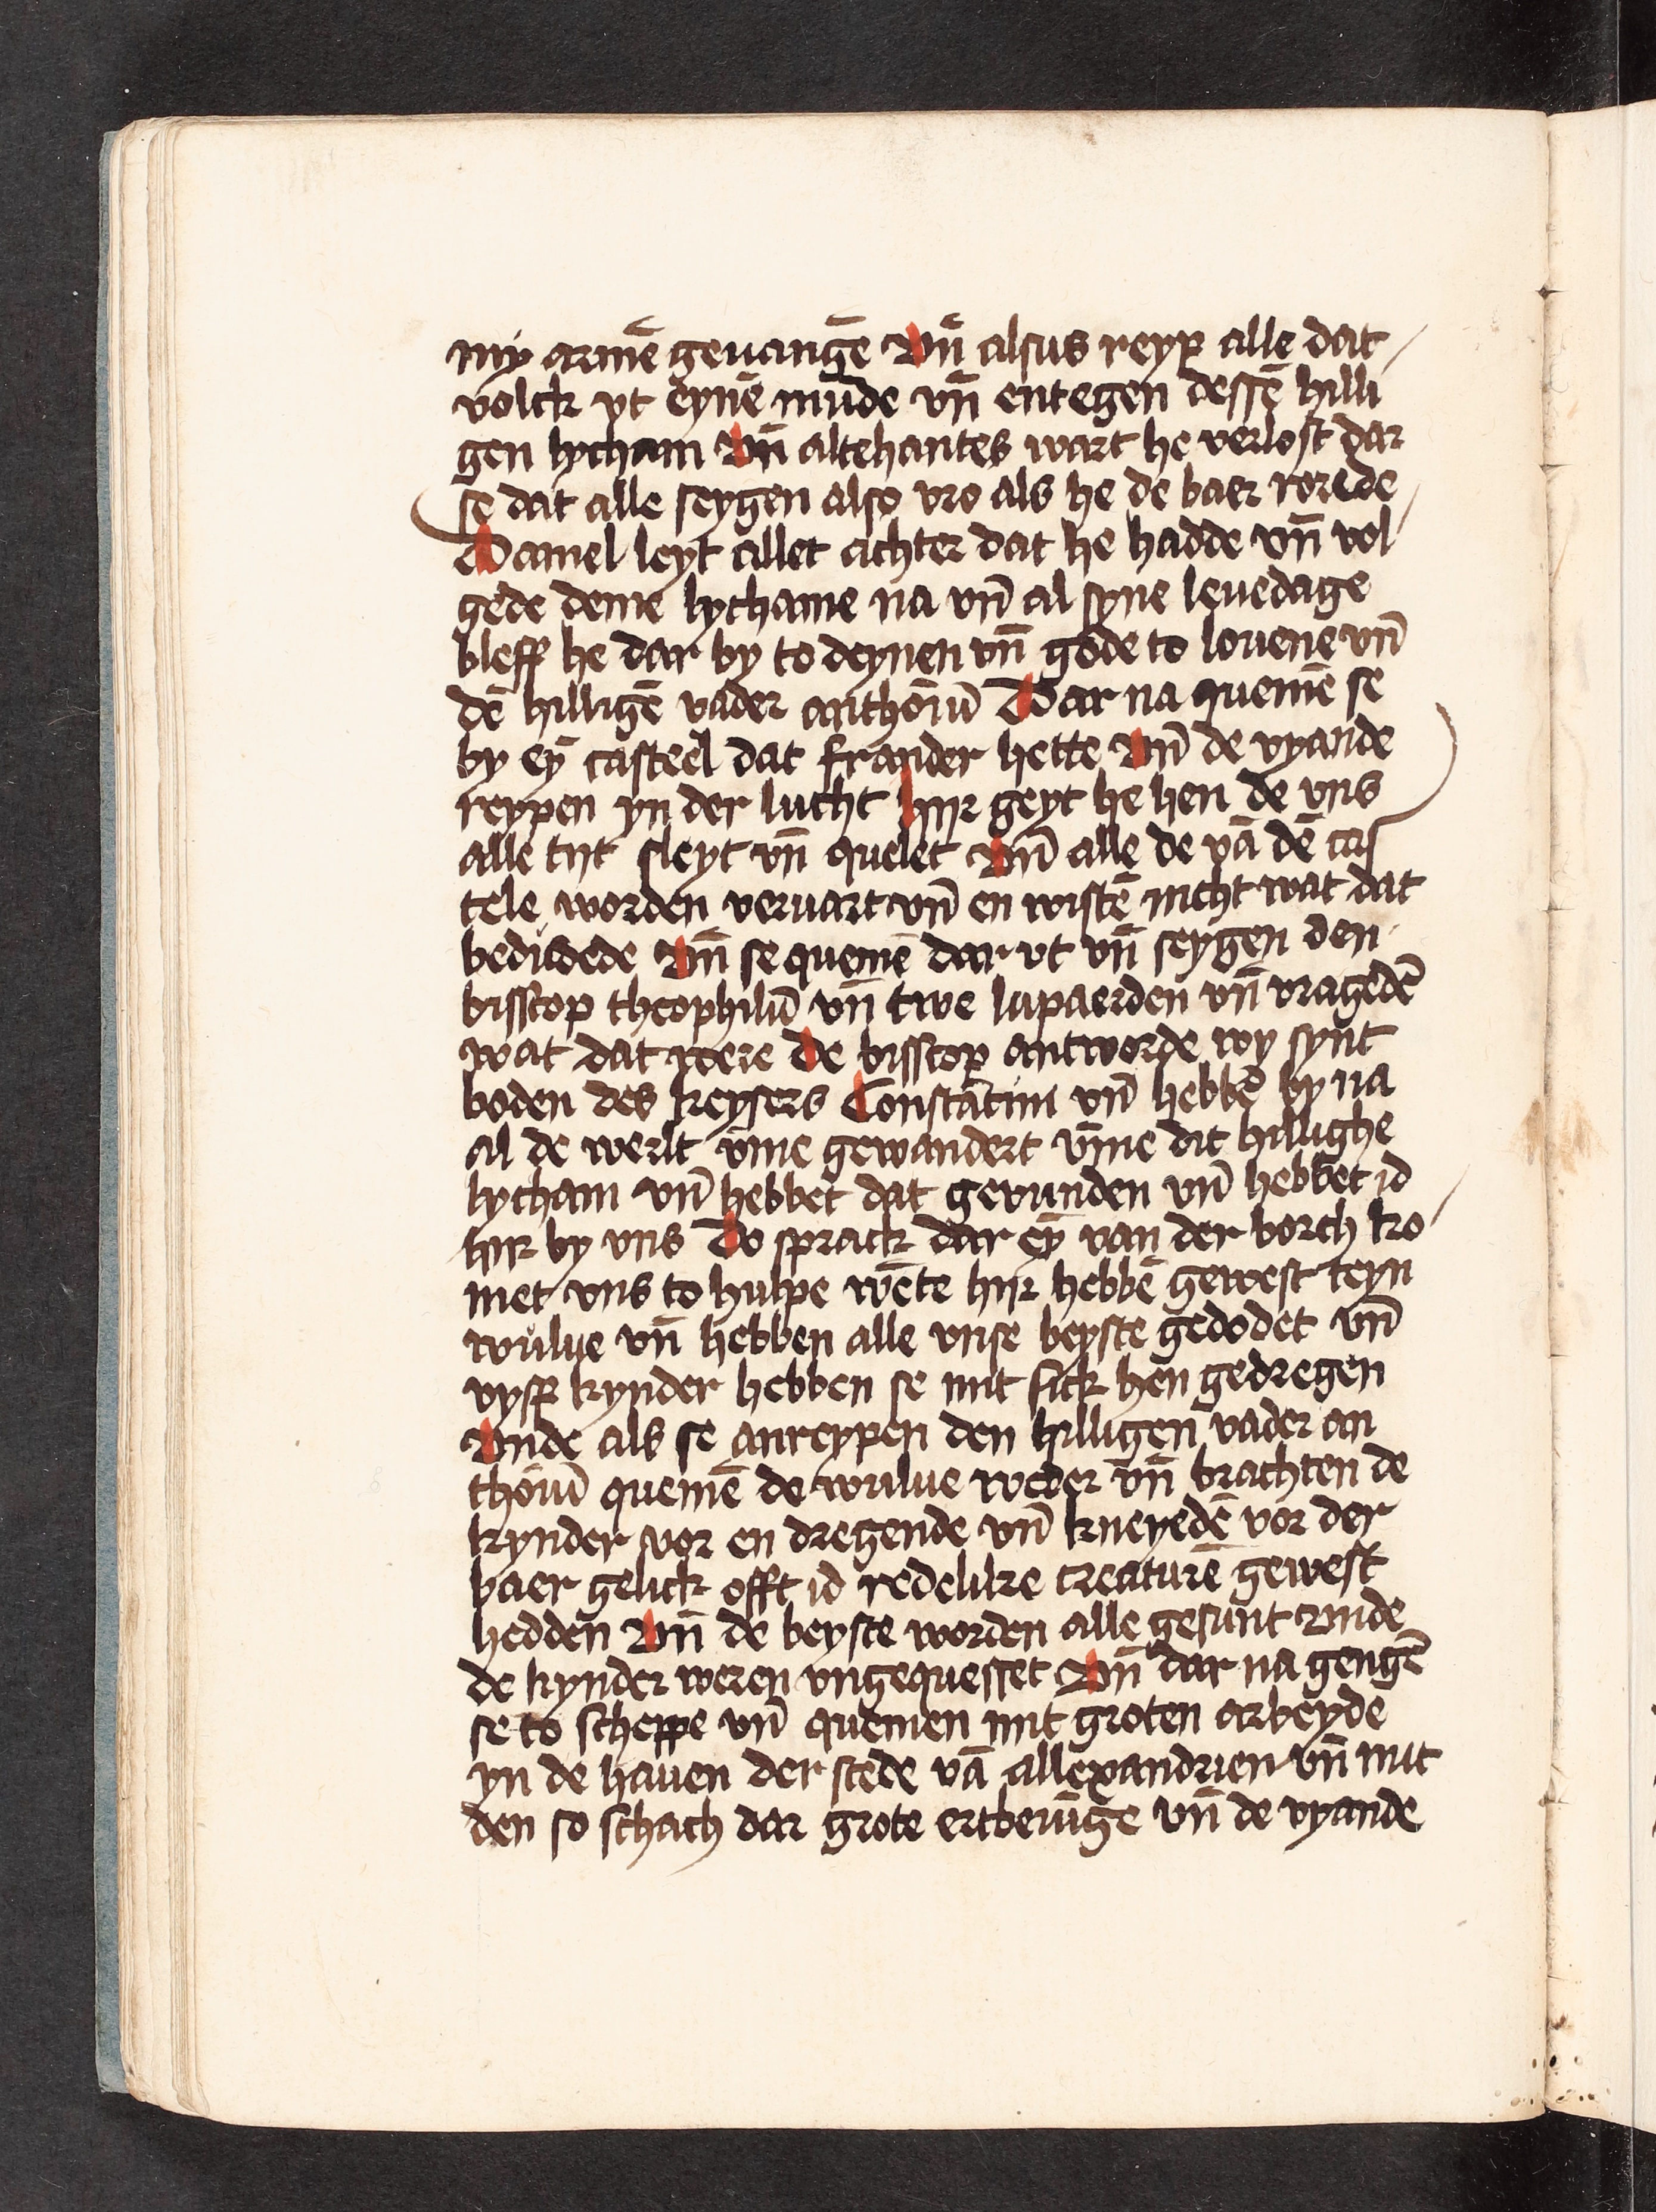 my armē geuangē Vn̄ alsus reyp alle dat
volck vt eynē mūde vn̄ entegen dessē hilli
gen lycham Vn̄ altehantes wart he verlost dar
se dat alle seygen also vro als he de baer rorede
Daniel leyt allet achter dat he hadde vn̄ vol
gede deme lychame na vn̄ al syne leuedage
bleff he dar by to deynen vn̄ gode to louene vn̄
dē hilligē vader anthoniū Dar na quemē se
by eȳ casteel dat frander hette Vn̄ de vyande
reypen yn der lucht hijr geyt he hen de vns
alle tijt sleyt vn̄ quelet Vn̄ alle de vā dē cas
tele worden veruart vn̄ en wistē nicht wat dat
bedudede Vn̄ se quemē dar vt vn̄ seygen den
bisscop theophilū vn̄ twe lupaerden vn̄ vragedē
wat dat were De bisscop antworde wy synt
boden des keysers Constātini vn̄ hebbē by na
al de werlt vm̄e gewandert vm̄e dit hillighe
lycham vn̄ hebbet dat gevunden vn̄ hebbet id
hijr by vns Do sprack dar eȳ van der borch ko
met vns to hulpe wēte hijr hebbē gewest teyn
wulue vn̄ hebben alle vnse beyste gedodet vn̄
vyff kynder hebben se mit sick hen gedregen
Vnde als se anreypen den hilligen vader an
thoniū quemē de wulue weder vn̄ brachten de
kynder vor en dregende vn̄ kneyedē vor der
baer gelick offt id redelike creaturē gewest
hedden Vn̄ de beyste worden alle gesunt Vnde
de kynder weren vngequesset Vn̄ dar na gengē
se to scheppe vn̄ quemen mit groten arbeyde
yn de hauen der stede vā allexandrien vn̄ mit
den so schach dar grote ertbeuīge vn̄ de vyande